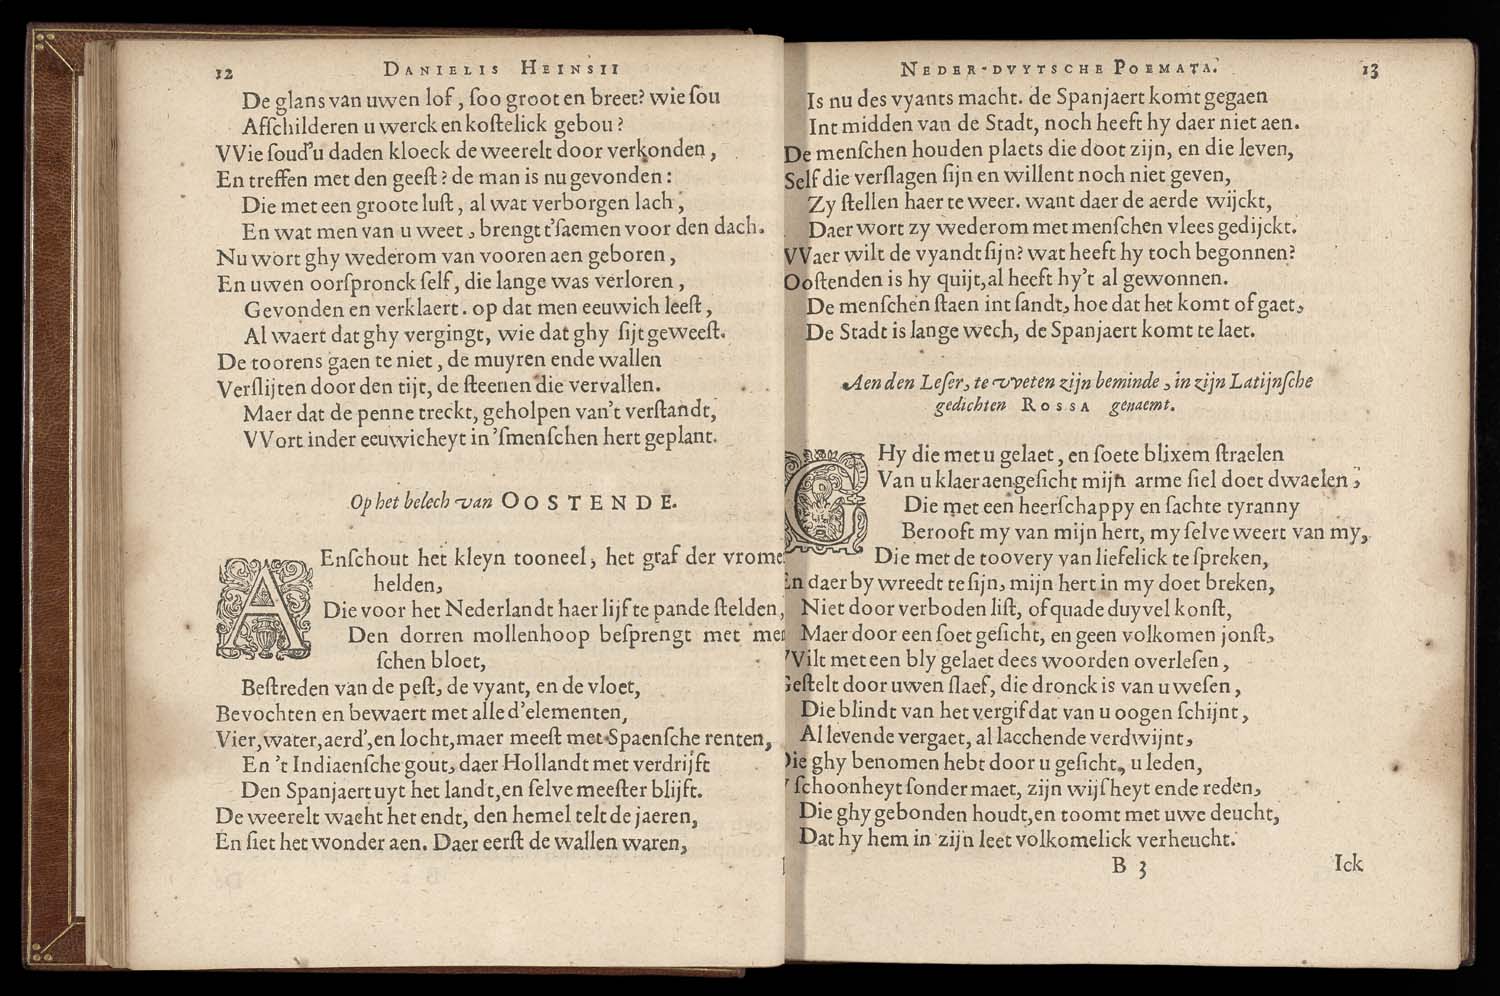 12 DANIELIS HEINSII
De glans van uwen lof, ſoo groot en breet? wie ſou
Afſchilderen u werck en koſtelick gebou?
VVie ſoud'u daden kloeck de weerelt door verkonden,
En treffen met den geeſt? de man is nu gevonden:
Die met een groote luſt, al wat verborgen lach,
En wat men van u weet, brengt t'ſaemen voor den dach.
Nu wort ghy wederom van vooren aen geboren,
En uwen oorſpronck ſelf, die lange was verloren,
Gevonden en verklaert. op dat men eeuwich leeſt,
Al waert dat ghy vergingt, wie dat ghy ſijt geweeſt.
De toorens gaen te niet, de muyren ende wallen
Verſlijten door den tijt, de ſteenen die vervallen.
Maer dat de penne treckt, geholpen van't verſtandt,
VVort inder eeuwicheyt in 'ſmenſchen hert geplant.
Op het belech van OOSTENDE.
AEnſchout het kleyn tooneel, het graf der vrome
helden,
Die voor het Nederlandt haer lijf te pande ſtelden,
Den dorren mollenhoop beſprengt met men
ſchen bloet,
Beſtreden van de peſt, de vyant, en de vloet,
Bevochten en bewaert met alle d'elementen,
Vier, water, aerd', en locht, maer meeſt met Spaenſche renten,
En 't Indiaenſche gout, daer Hollandt met verdrijft
Den Spanjaert uyt het landt, en ſelve meeſter blijft.
De weerelt wacht het endt, den hemel telt de jaeren,
En ſiet het wonder aen. Daer eerſt de wallen waren,
NEDER-DVYTSCHE POEMATA. 13
Is nu des vyants macht. de Spanjaert komt gegaen
Int midden van de Stadt, noch heeft hy daer niet aen.
De menſchen houden plaets die doot zijn, en die leven,
Self die verſlagen ſijn en willent noch niet geven,
Zy ſtellen haer te weer. want daer de aerde wijckt,
Daer wort zy wederom met menſchen vlees gedijckt.
VVaer wilt de vyandt ſijn? wat heeft hy toch begonnen?
Ooſtenden is hy quijt, al heeft hy't al gewonnen.
De menſchen ſtaen int ſandt, hoe dat het komt of gaet,
De Stadt is lange wech, de Spanjaert komt te laet.
Aen den Leſer, te vveten zijn beminde, in zijn Latijnſche
gedichten ROSSA genaemt.
GHy die met u gelaet, en ſoete blixem ſtraelen
Van u klaer aengeſicht mijn arme ſiel doet dwaelen,
Die met een heerſchappy en ſachte tyranny
Berooft my van mijn hert, my ſelve weert van my,
Die met de toovery van liefelick te ſpreken,
En daer by wreedt te ſijn, mijn hert in my doet breken,
Niet door verboden liſt, of quade duyvel konſt,
Maer door een ſoet geſicht, en geen volkomen jonſt,
VVilt met een bly gelaet dees woorden overleſen,
Geſtelt door uwen ſlaef, die dronck is van u weſen,
Die blindt van het vergif dat van u oogen ſchijnt,
Al levende vergaet, al lacchende verdwijnt,
Die ghy benomen hebt door u geſicht, u leden,
V ſchoonheyt ſonder maet, zijn wijſheyt ende reden,
Die ghy gebonden houdt, en toomt met uwe deucht,
Dat hy hem in zijn leet volkomelick verheucht.
B 3 Ick